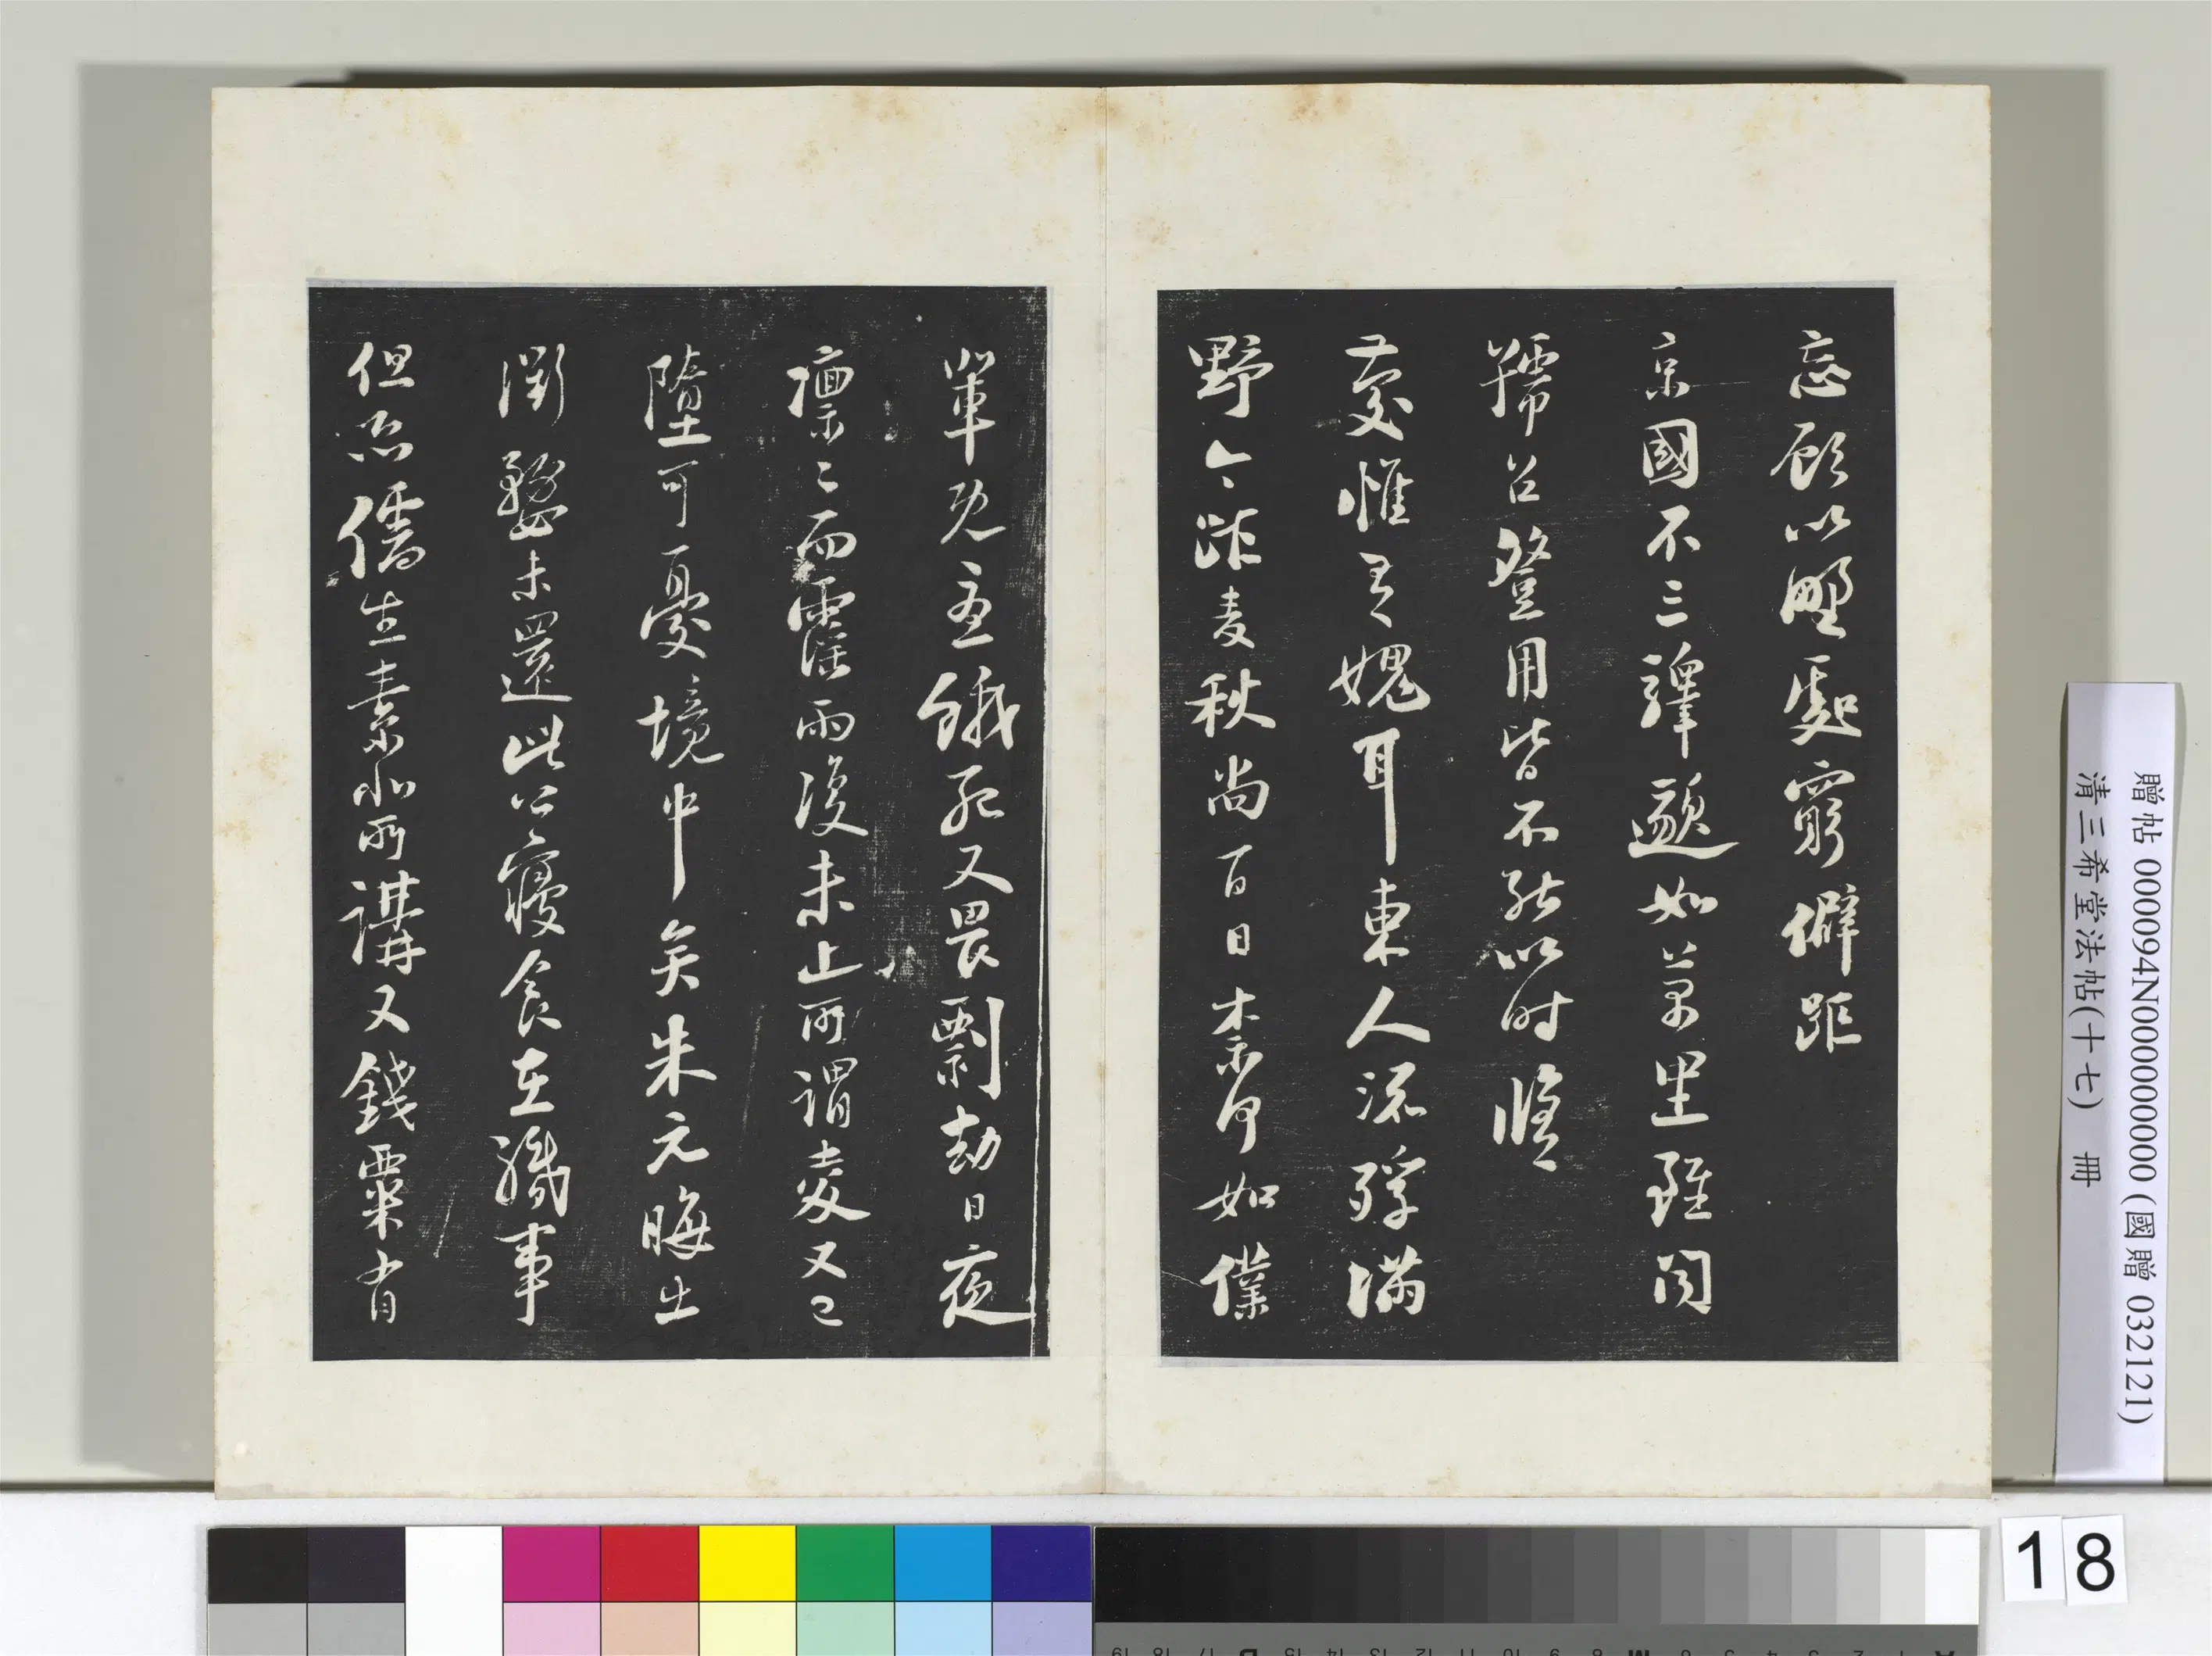 忘顧以野處窮僻距
京國不三驛邈如萬里雖聞
號召登用皆不能以時修
慶惟有愧耳東人流殍滿
野今距麥秋尚百日柰何如僕
輩既餓死又畏剽劫日夜
凜凜而霪雨復未止所謂麥又已
墮可憂境中矣朱元晦出
衢婺未還此公寢食在職事
但恐儒生素非所講又錢粟有
贈帖 000094N000000000 (國贈 032121)
清三希堂法帖(十七) 冊
18